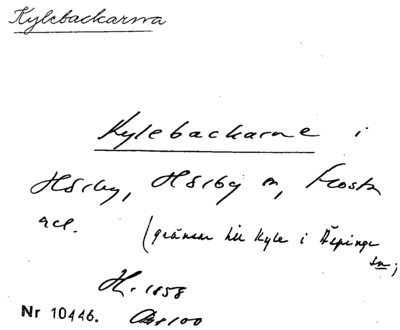 Kylebackarna
Kylebackarne i
Hörby, Hörby sn, Frosta
acl. (gränsar till Kyle i Äspinge
sn;
H. 1858
Nr 10446.